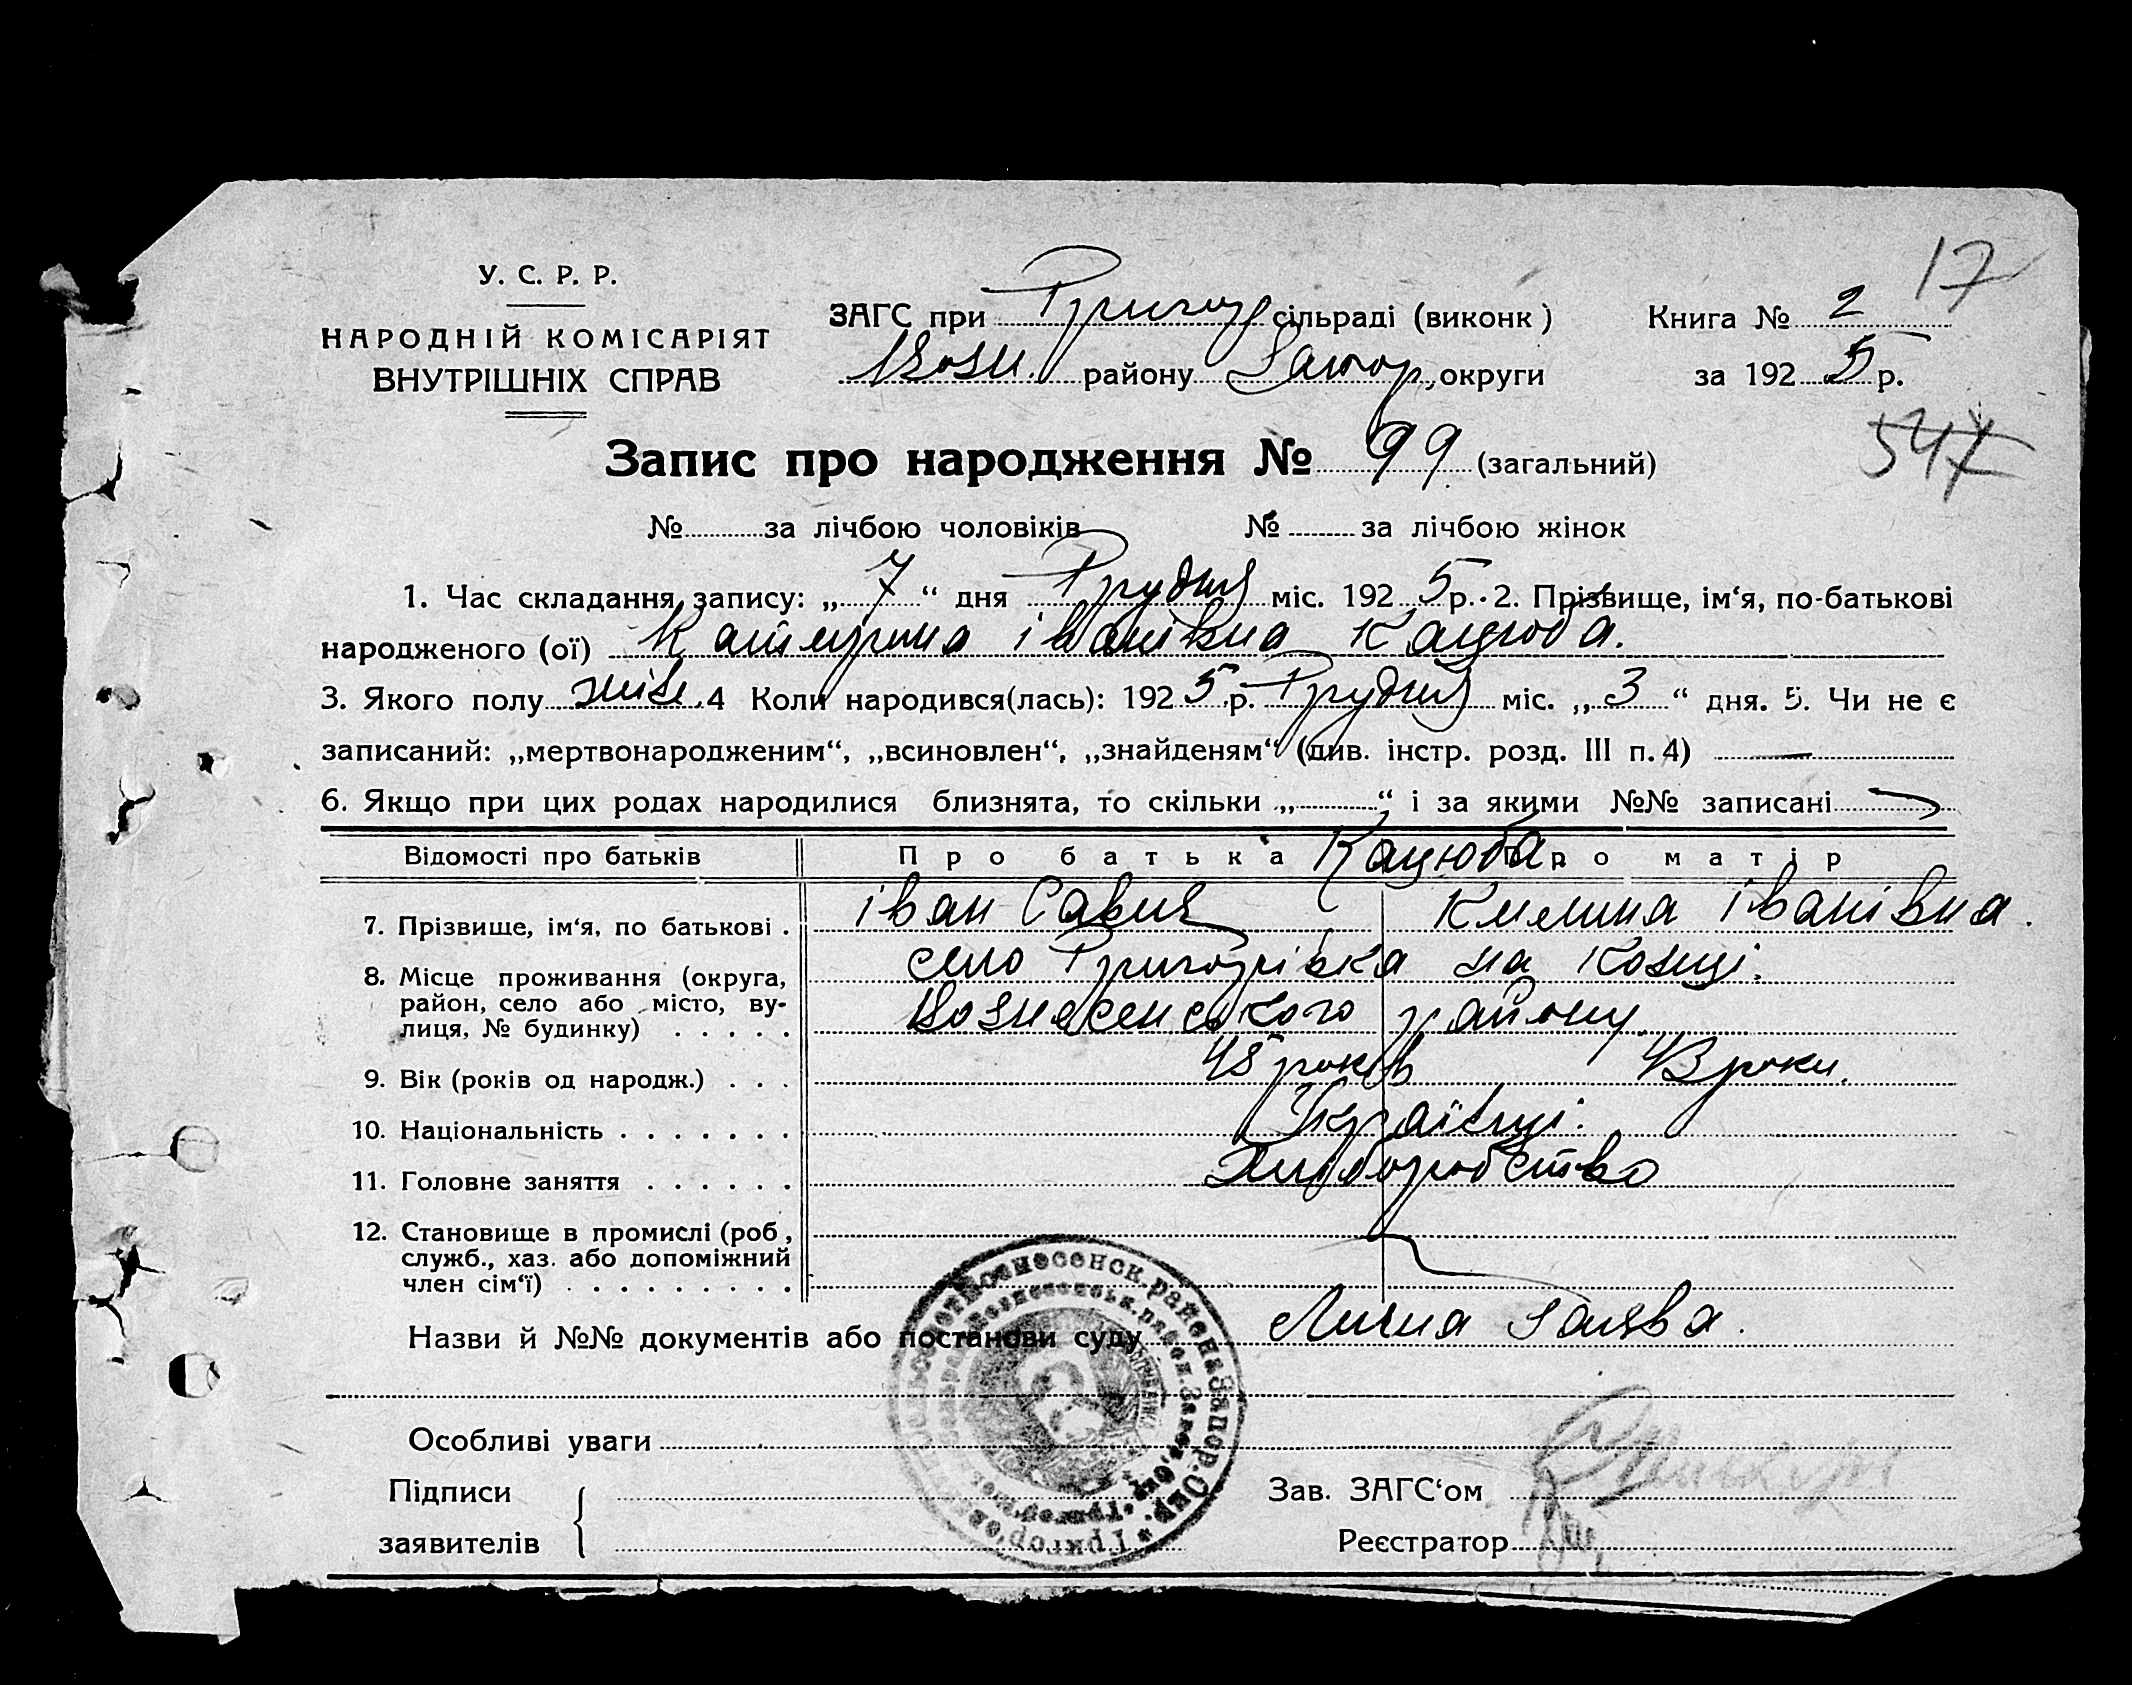 17
У. С. Р. Р.
НАРОДНІЙ КОМІСАРІЯТ
ВНУТРІШНІХ СПРАВ
ЗАГС при Григор сільраді (виконк)
Возн. району Запор. округи
Книга № 2
за 1925 р.
547
Запис про народження № 99 (загальний)
№ за лічбою чоловіків № за лічбою жінок
1. Час складання запису: „7“ дня Грудня міс. 1925 р. 2. Прізвище, ім‘я, по-батькові
народженого (ої) Катерина Іванівна Кацюба.
3. Якого полу жін. 4 Коли народився(лась): 1925 р. Грудня міс. „3“ дня. 5. Чи не є
записаний: „мертвонародженим“, „всиновлен“, „знайденям“ (див. інстр. розд. III п. 4) —
6. Якщо при цих родах народилися близнята, то скільки „ “ і за якими №№ записані
Відомості про батьків Про батька Про матір
Кацюба.
7. Прізвище, ім‘я, по батькові . Іван Савич Килина Іванівна.
8. Місце проживання (округа, село Григорівка на Конці.
район, село або місто, ву-
лиця, № будинку) . . . . . Вознесенського району.
9. Вік (років од народж.) . . . 45 років 43 роки.
10. Національність . . . . . . . Українці.
11. Головне заняття . . . . . . Хліборобство
12. Становище в промислі (роб,
служб., хаз. або допоміжний
член сім‘ї) . . . . . . . . .
Назви й №№ документів або постанови суду Лична заява.
Особливі уваги
Підписи
заявителів
Зав. ЗАГС‘ом
Реєстратор